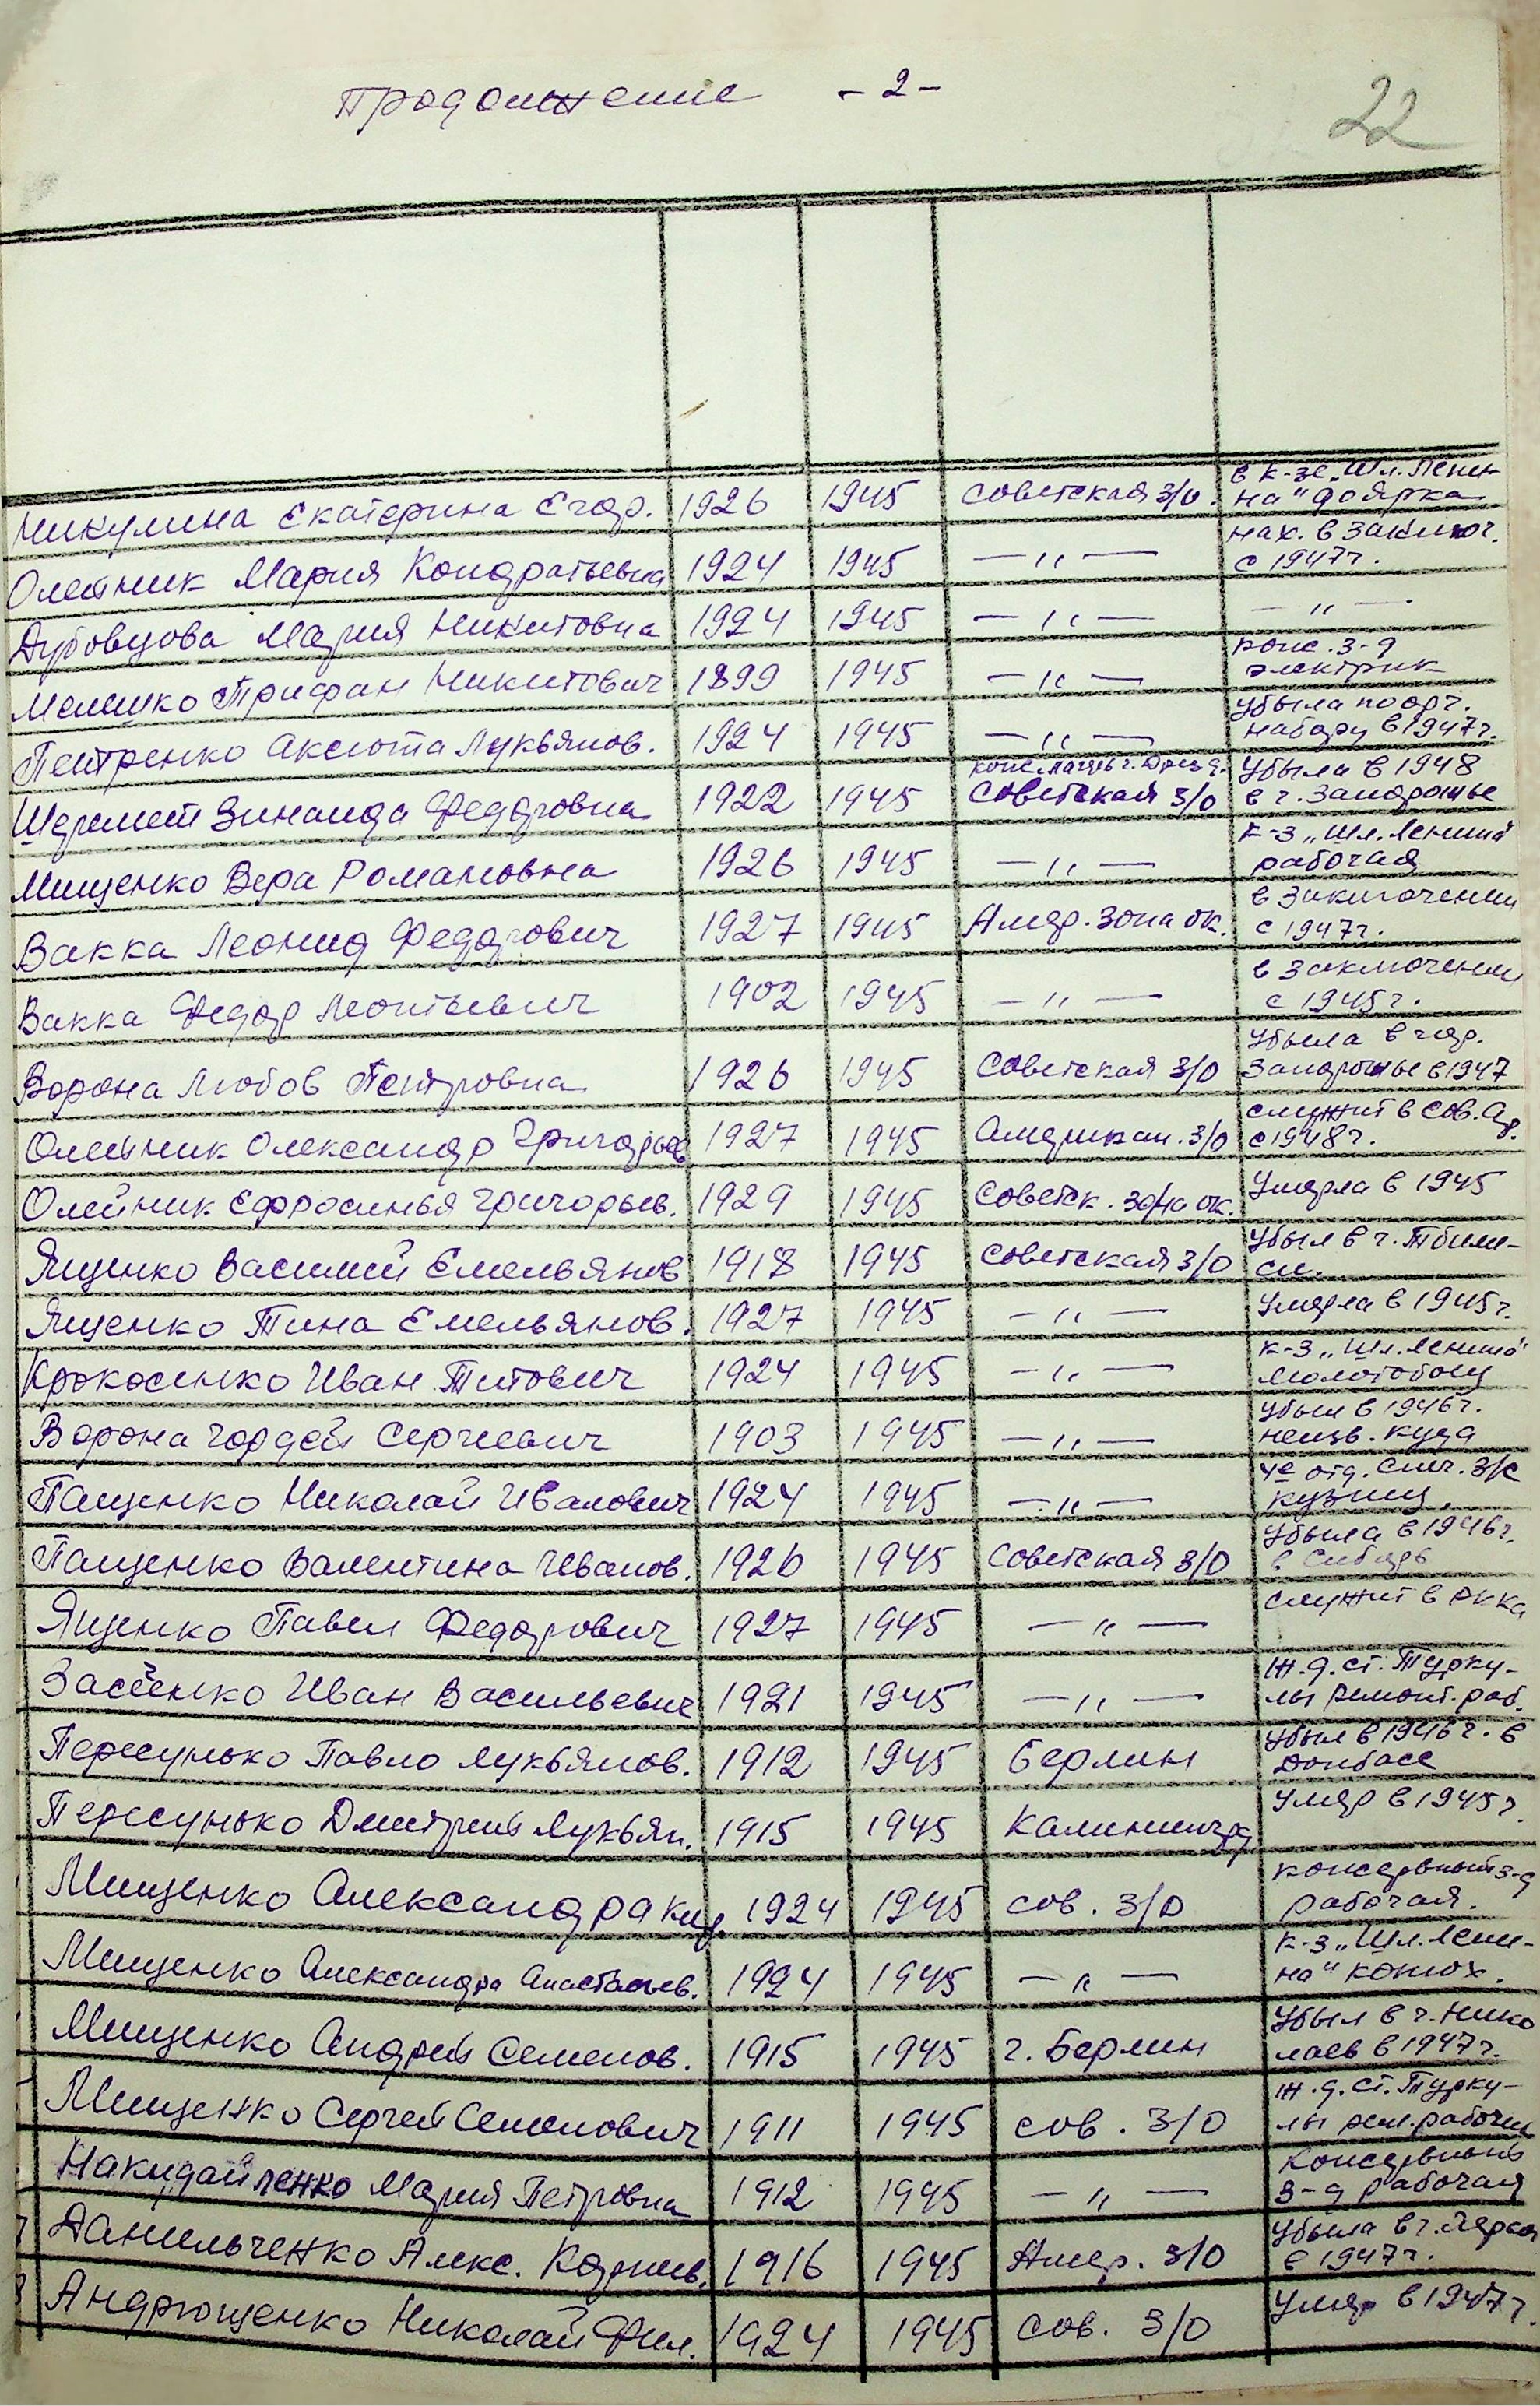 продолжение - 2 -
22
Никулина Екатерина Егор. 1926 1945 Советская з/о. в к-зе „Шл. Лени-
на" доярка
Олейник Мария Кондратьевна 1924 1945 — „ — нах. в заключ.
с 1947 г.
Дубовцова Мария Никитовна 1924 1945 — „ — — „ —
Мелешко Трифан Никитович 1899 1945 — „ — конс. з-д
электрик
Петренко Аксюта Лукьянов. 1924 1945 — „ — убыла по орг.
набору в 1947 г.
Шеремет Зинаида Федоровна 1922 1945 конс. лагерь г. Дрезд. Советская з/о Убыла в 1948
в г. Запорожье
Мищенко Вера Романовна 1926 1945 — „ — к-з „Шл. Ленина"
рабочая
Вакка Леонид Федорович 1927 1945 Амер. зона ок. в заключении
с 1947 г.
Вакка Федор Леонтьевич 1902 1945 — „ — в заключении
с 1945 г.
Ворона Любов Петровна 1926 1945 Советская з/о Убыла в гор.
Запорожье в 1947
Олейник Олександр Григорьев 1927 1945 Американ. з/о служит в Сов. Ар.
с 1948 г.
Олейник Ефросинья Григорьев. 1929 1945 Советск. зона ок. Умерла в 1945
Ященко Василий Емельянов 1918 1945 Советская з/о Убыл в г. Тбили-
си.
Ященко Тина Емельянов. 1927 1945 — „ — Умерла в 1945 г.
Крокосенко Иван Титович 1924 1945 — „ — к-з „Шл. Ленина"
молотобоец
Ворона Гордей Сергеевич 1903 1945 — „ — Убыл в 1946 г.
неизв. куда
Пащенко Николай Иванович 1924 1945 — „ — 4е отд. свч. з/с
кузнец.
Пащенко Валентина Иванов. 1926 1945 Советская з/о Убыла в 1946 г.
в Сибирь
Ященко Павел Федорович 1927 1945 — „ — служит в РККА
Засеенко Иван Васильевич 1921 1945 — „ — ж.д. ст. Турку-
лы ремонт. раб.
Пересунько Павло Лукьянов. 1912 1945 Берлин Убыл в 1946 г. в
Донбасс
Пересунько Дмитрий Лукьян. 1915 1945 Калининград Умер в 1945 г.
Мищенко Александра Кир. 1924 1945 сов. з/о консервный з-д
рабочая.
Мищенко Александра Анастасьев. 1924 1945 — „ — к-з „Шл. Лени-
на" конюх.
Мищенко Андрей Семенов. 1915 1945 г. Берлин Убыл в г. Нико
лаев в 1947 г.
Мищенко Сергей Семенович 1911 1945 сов. з/о ж.д. ст. Турку-
лы рем. рабочий
Накидайленко Мария Петровна 1912 1945 — „ — Консервный
з-д рабочая
Данильченко Алекс. Корнив. 1916 1945 Амер. з/о Убыла в г.
в 1947 г.
Андрющенко Николай Фил. 1924 1945 сов. з/о Умер в 1947 г.